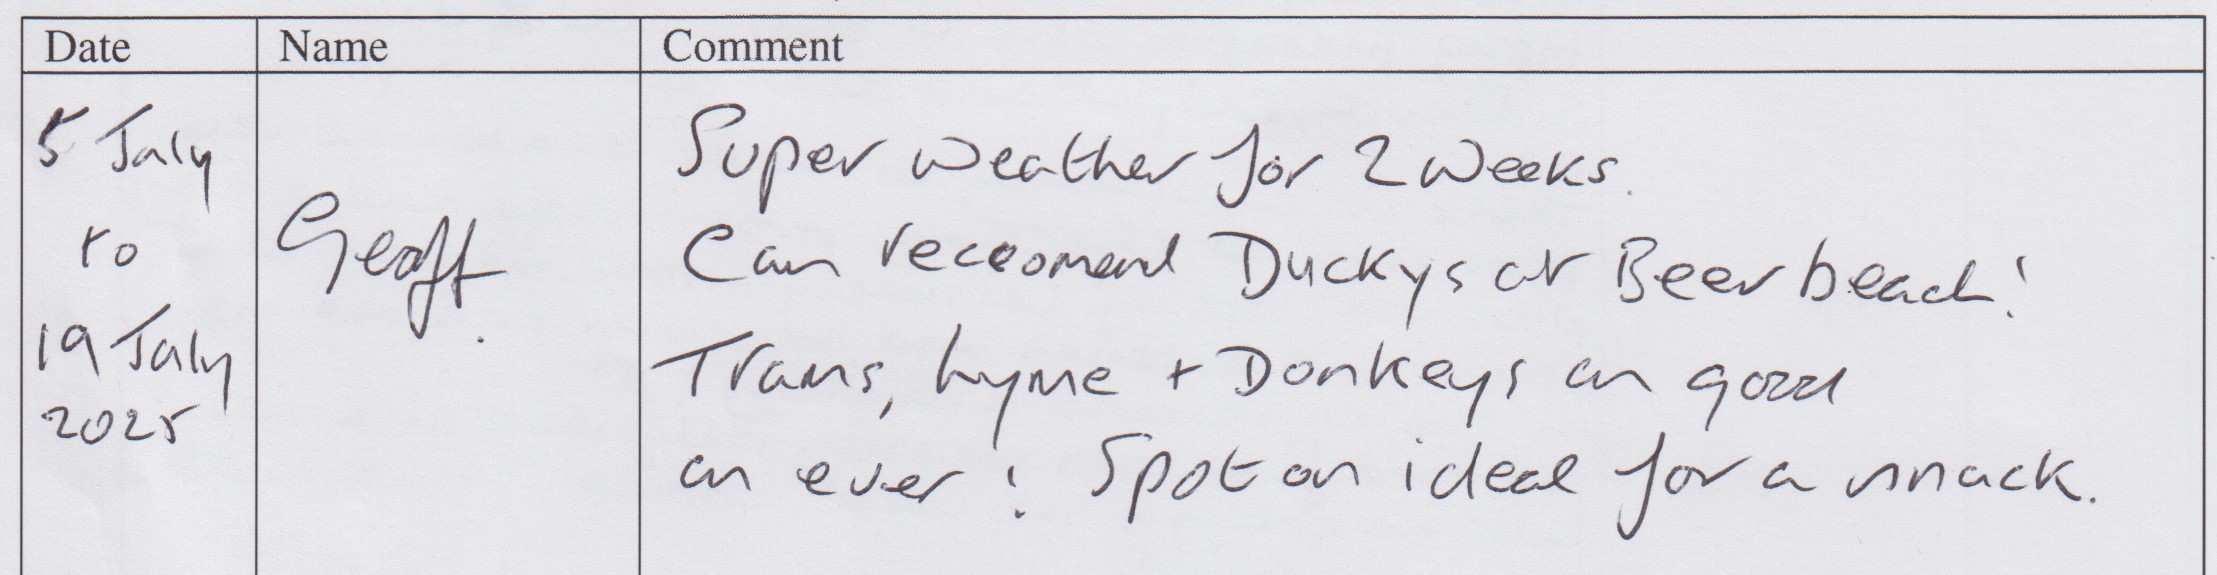 Date Name Comment
5 July
to
19 July
2025
Geoff.
Super weather for 2 weeks.
Can reccomend Duckys at Beer beach!
Trams, Lyme + Donkeys as good
as ever! Spot on ideal for a snack.